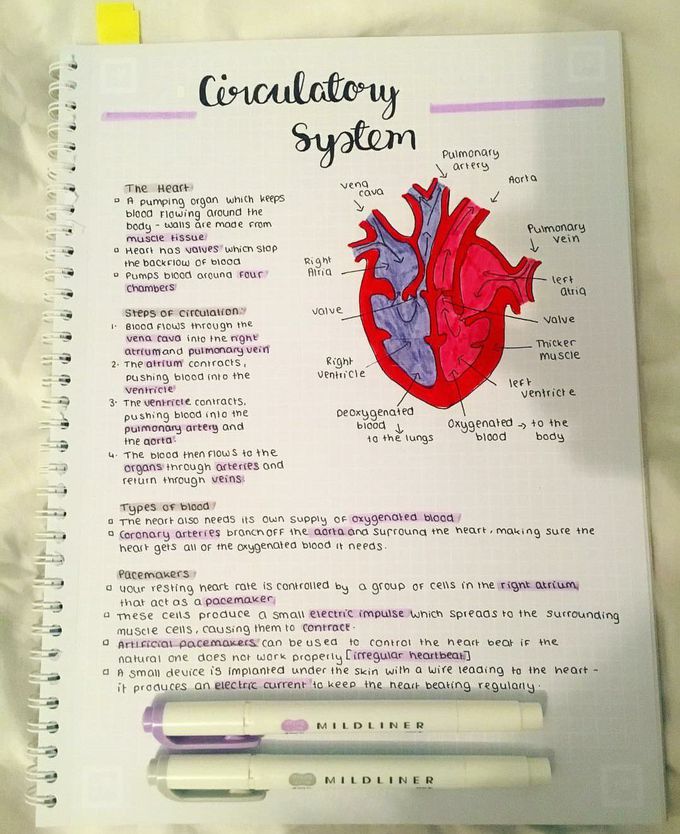 Circulatory
System
The Heart
A pumping organ which keeps
blood flowing around the
body - walls are made from
muscle tissue
Heart has valves which stop
the backflow of blood
Pumps blood around four
chambers
Steps of circulation:
1. Blood flows through the
vena cava into the right
atrium and pulmonary vein
2. The atrium contracts,
pushing blood into the
ventricle
3. The ventricle contracts,
pushing blood into the
pulmonary artery and
the aorta.
4. The blood then flows to the
organs through arteries and
return through veins.
vena
cava
Pulmonary
artery
Aorta
Pulmonary
vein
Right
Atria
left
atria
valve
Valve
Thicker
muscle
Right
ventricle
left
ventricle
Deoxygenated
blood ↓
to the lungs
Oxygenated → to the
blood body
Types of blood
The heart also needs its own supply of oxygenated blood
Coronary arteries branch off the aorta and surround the heart, making sure the
heart gets all of the oxygenated blood it needs.
Pacemakers
Your resting heart rate is controlled by a group of cells in the right atrium,
that act as a pacemaker
These cells produce a small electric impulse which spreads to the surrounding
muscle cells, causing them to contract.
Artificial pacemakers can be used to control the heart beat if the
natural one does not work properly [irregular heartbeat]
A small device is implanted under the skin with a wire leading to the heart -
it produces an electric current to keep the heart beating regularly.
MILDLINER
MILDLINER